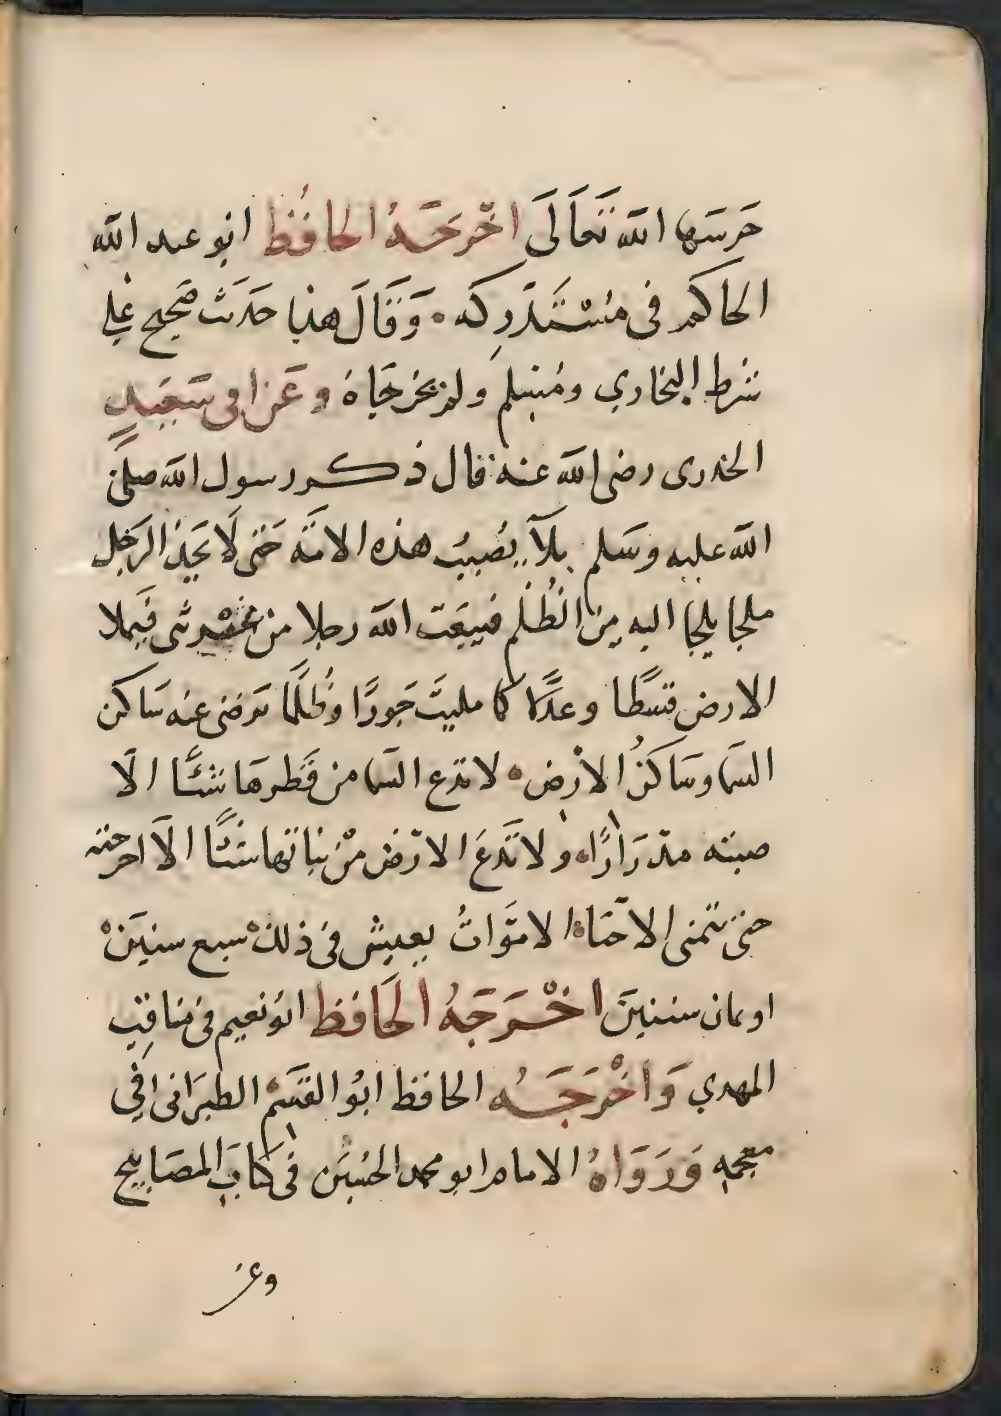 حرسها الله تعالى اخرجه الحافظ ابو عبد الله
الحاكم فى مستدركه وقال هذا حديث صحيح على
شرط البخاري ومسلم ولم يخرجاه وعن ابى سعيد
الخدرى رضى الله عنه قال ذكر رسول الله صلى
الله عليه وسلم بلآ يصيب هذه الامة حتى لا يجد الرجل
ملجا يلجا اليه من الظلم فيبعث الله رجلا من عترتى فيملا
الارض قسطا وعدلا كما مليت جورا وظلما يرضى عنه ساكن
السما وساكن الارض لا تدع السما من قطرها شئا الا
صبته مدرارا ولا تدع الارض من نباتها شئا الا اخرجته
حتى تتمنى الاحيا الاموات يعيش فى ذلك سبع سنين
او ثمان سنين اخرجه الحافظ ابو نعيم فى مناقب
المهدي واخرجه الحافظ ابو القسم الطبرانى فى
معجمه ورواه الامام ابو محمد الحسين فى كتاب المصابيح
وعن